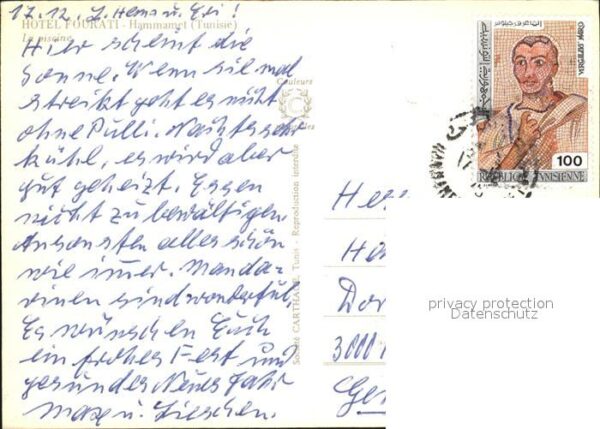 17.12. L. Hans u. Evi!
HOTEL FOURATI - Hammamet (Tunisie)
La piscine
Hier scheint die
Sonne. Wenn sie mal
streikt geht es nicht
ohne Pulli. Nachts sehr
kühl, es wird aber
gut geheizt. Essen
nicht zu bewältigen
Ansonsten alles schön
wie immer. Manda-
rinen sind wonderful,
Es wünschen Euch
ein frohes Fest und
gesundes Neues Jahr
Max u. Lieschen.
Couleurs
Société CARTHAGE Tunis - Reproduction interdite
VERGILIUS MARO
100
REPUBLIQUE TUNISIENNE
17
HAMMAM
Her
Ha
Dor
3000
Ger
privacy protection
Datenschutz